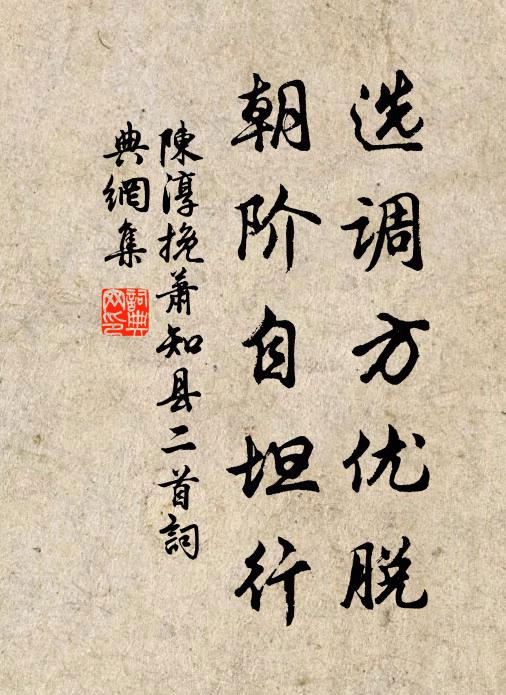 选调方优脱
朝阶自坦行
陳淳挽萧知县二首詞
典網集
詞典网印